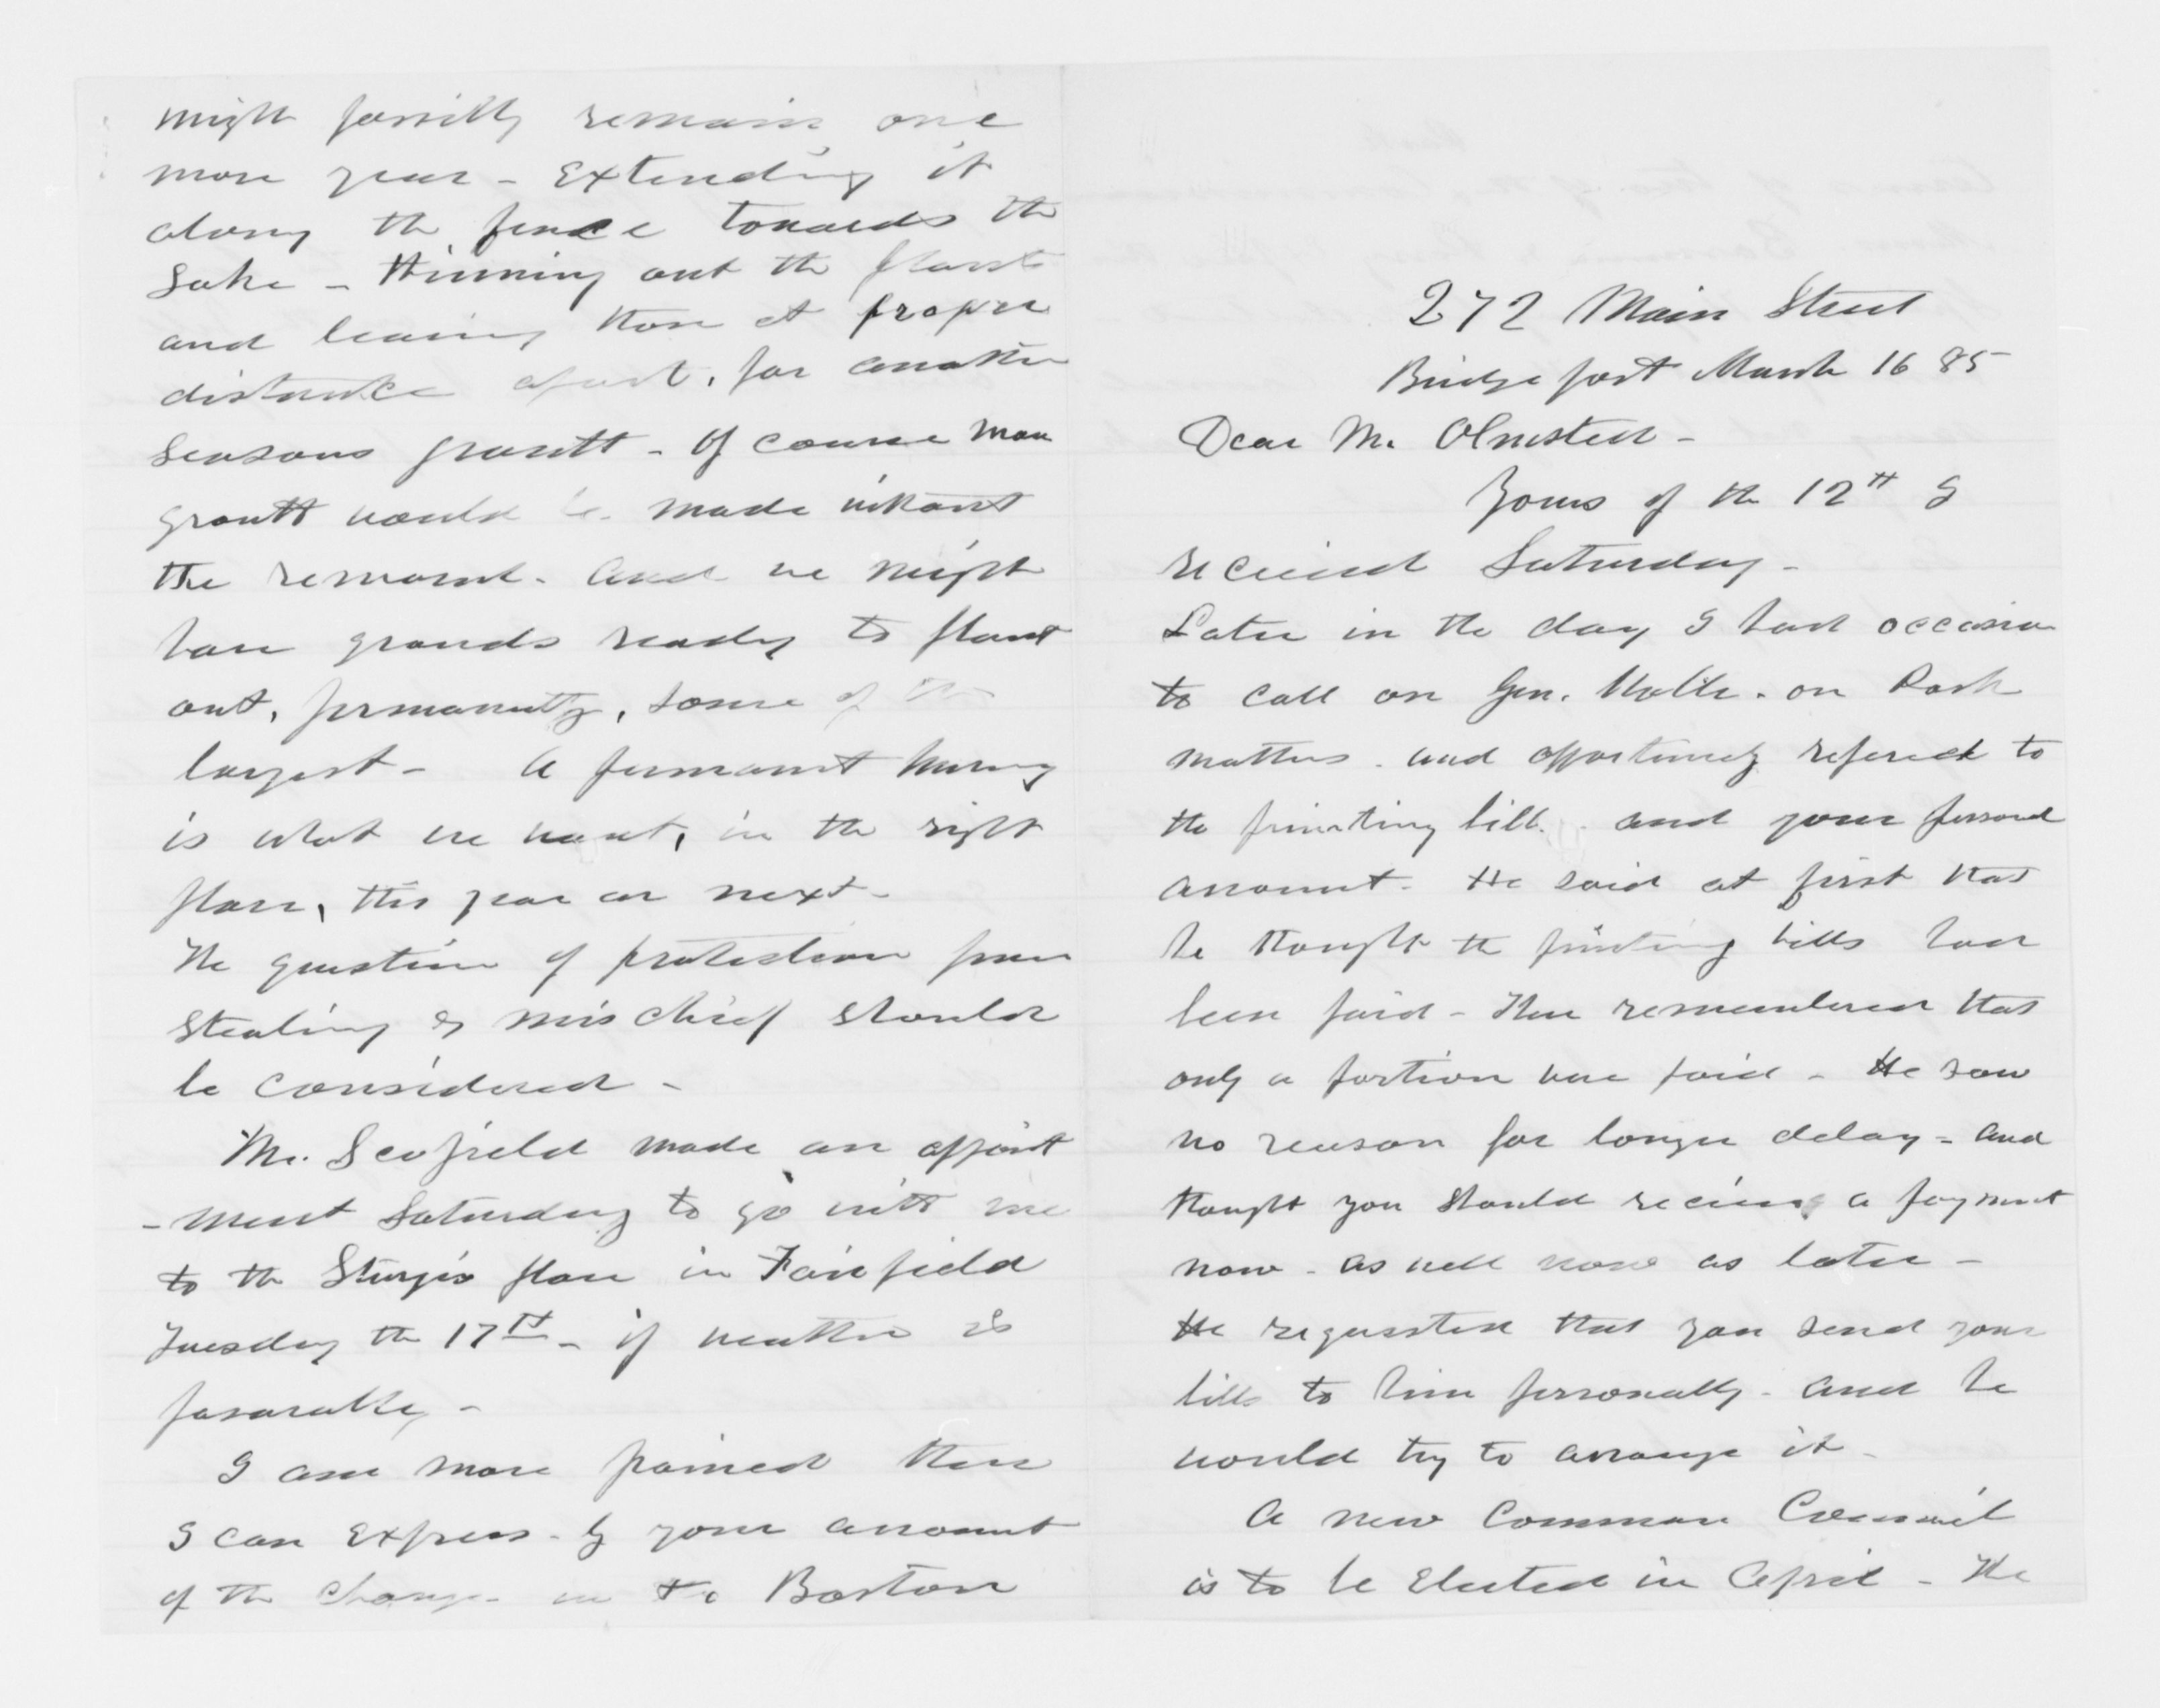 might possibly remain one
more year - Extending it
along the fence towards the
Lake - thinning out the plants
and leaving those at proper
distance apart, for another
seasons growth - Of course more
growth would be made without
the removal - And we might
have grounds ready to plant
out, permanently, some of the
largest - A permanent nursery
is what we want, in the right
place, this year or next -
The question of protection from
stealing & mischief should
be considered -
Mr. Scofield made an appoint
- ment Saturday to go with me
to the Sturgis place in Fairfield
Tuesday the 17th - if weather is
favorable -
I am more pained than
I can express - by your account
of the change in the Boston
272 Main Street
Bridgeport March 16 85
Dear Mr. Olmsted -
Yours of the 12th I
received Saturday -
Later in the day I had occasion
to call on Gen. on Park
matters - and opportunely refered to
the printing bill - and your personal
account - He said at first that
he thought the printing bills had
been paid - Then remembered that
only a portion were paid - He saw
no reason for longer delay - and
thought you should receive a payment
now - as well now as later -
He requested that you send your
bills to him personally - and he
would try to arrange it -
A new Common Council
is to be Elected in April - The